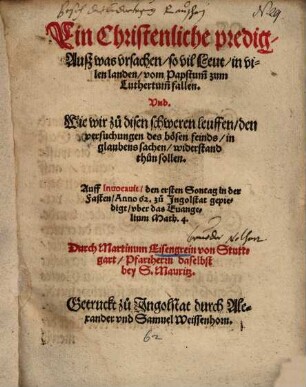 Ein Christenliche predig/
Auß was vrsachen/ so vil Leut/ in vi-
len landen/ vom Papstumb zum
Luthertumb fallen.
Vnd.
Wie wir zů disen schweren leuffen/ den
versuchungen des bösen feinds/ in
glaubens sachen/ widerstand
thůn sollen.
Auff Inuocauit/ den ersten Sontag in der
Fasten/ Anno 62. zů Ingolstat gepre-
digt/ vber das Euange-
lium Math. 4.
Durch Martinum Eisengrein von Stutt-
gart/ Pfarrherrn daselbst
bey S. Mauritz.
Getruckt zů Ingolstat durch Ale-
xander vnd Samuel Weissenhorn.
62